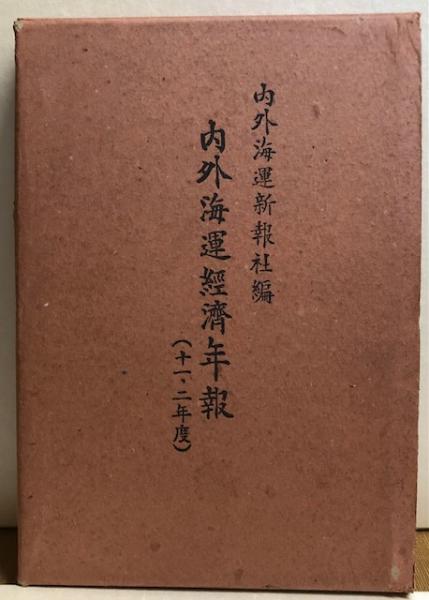 内外海運新報社編
内外海運經濟年報
（十一、二年度）